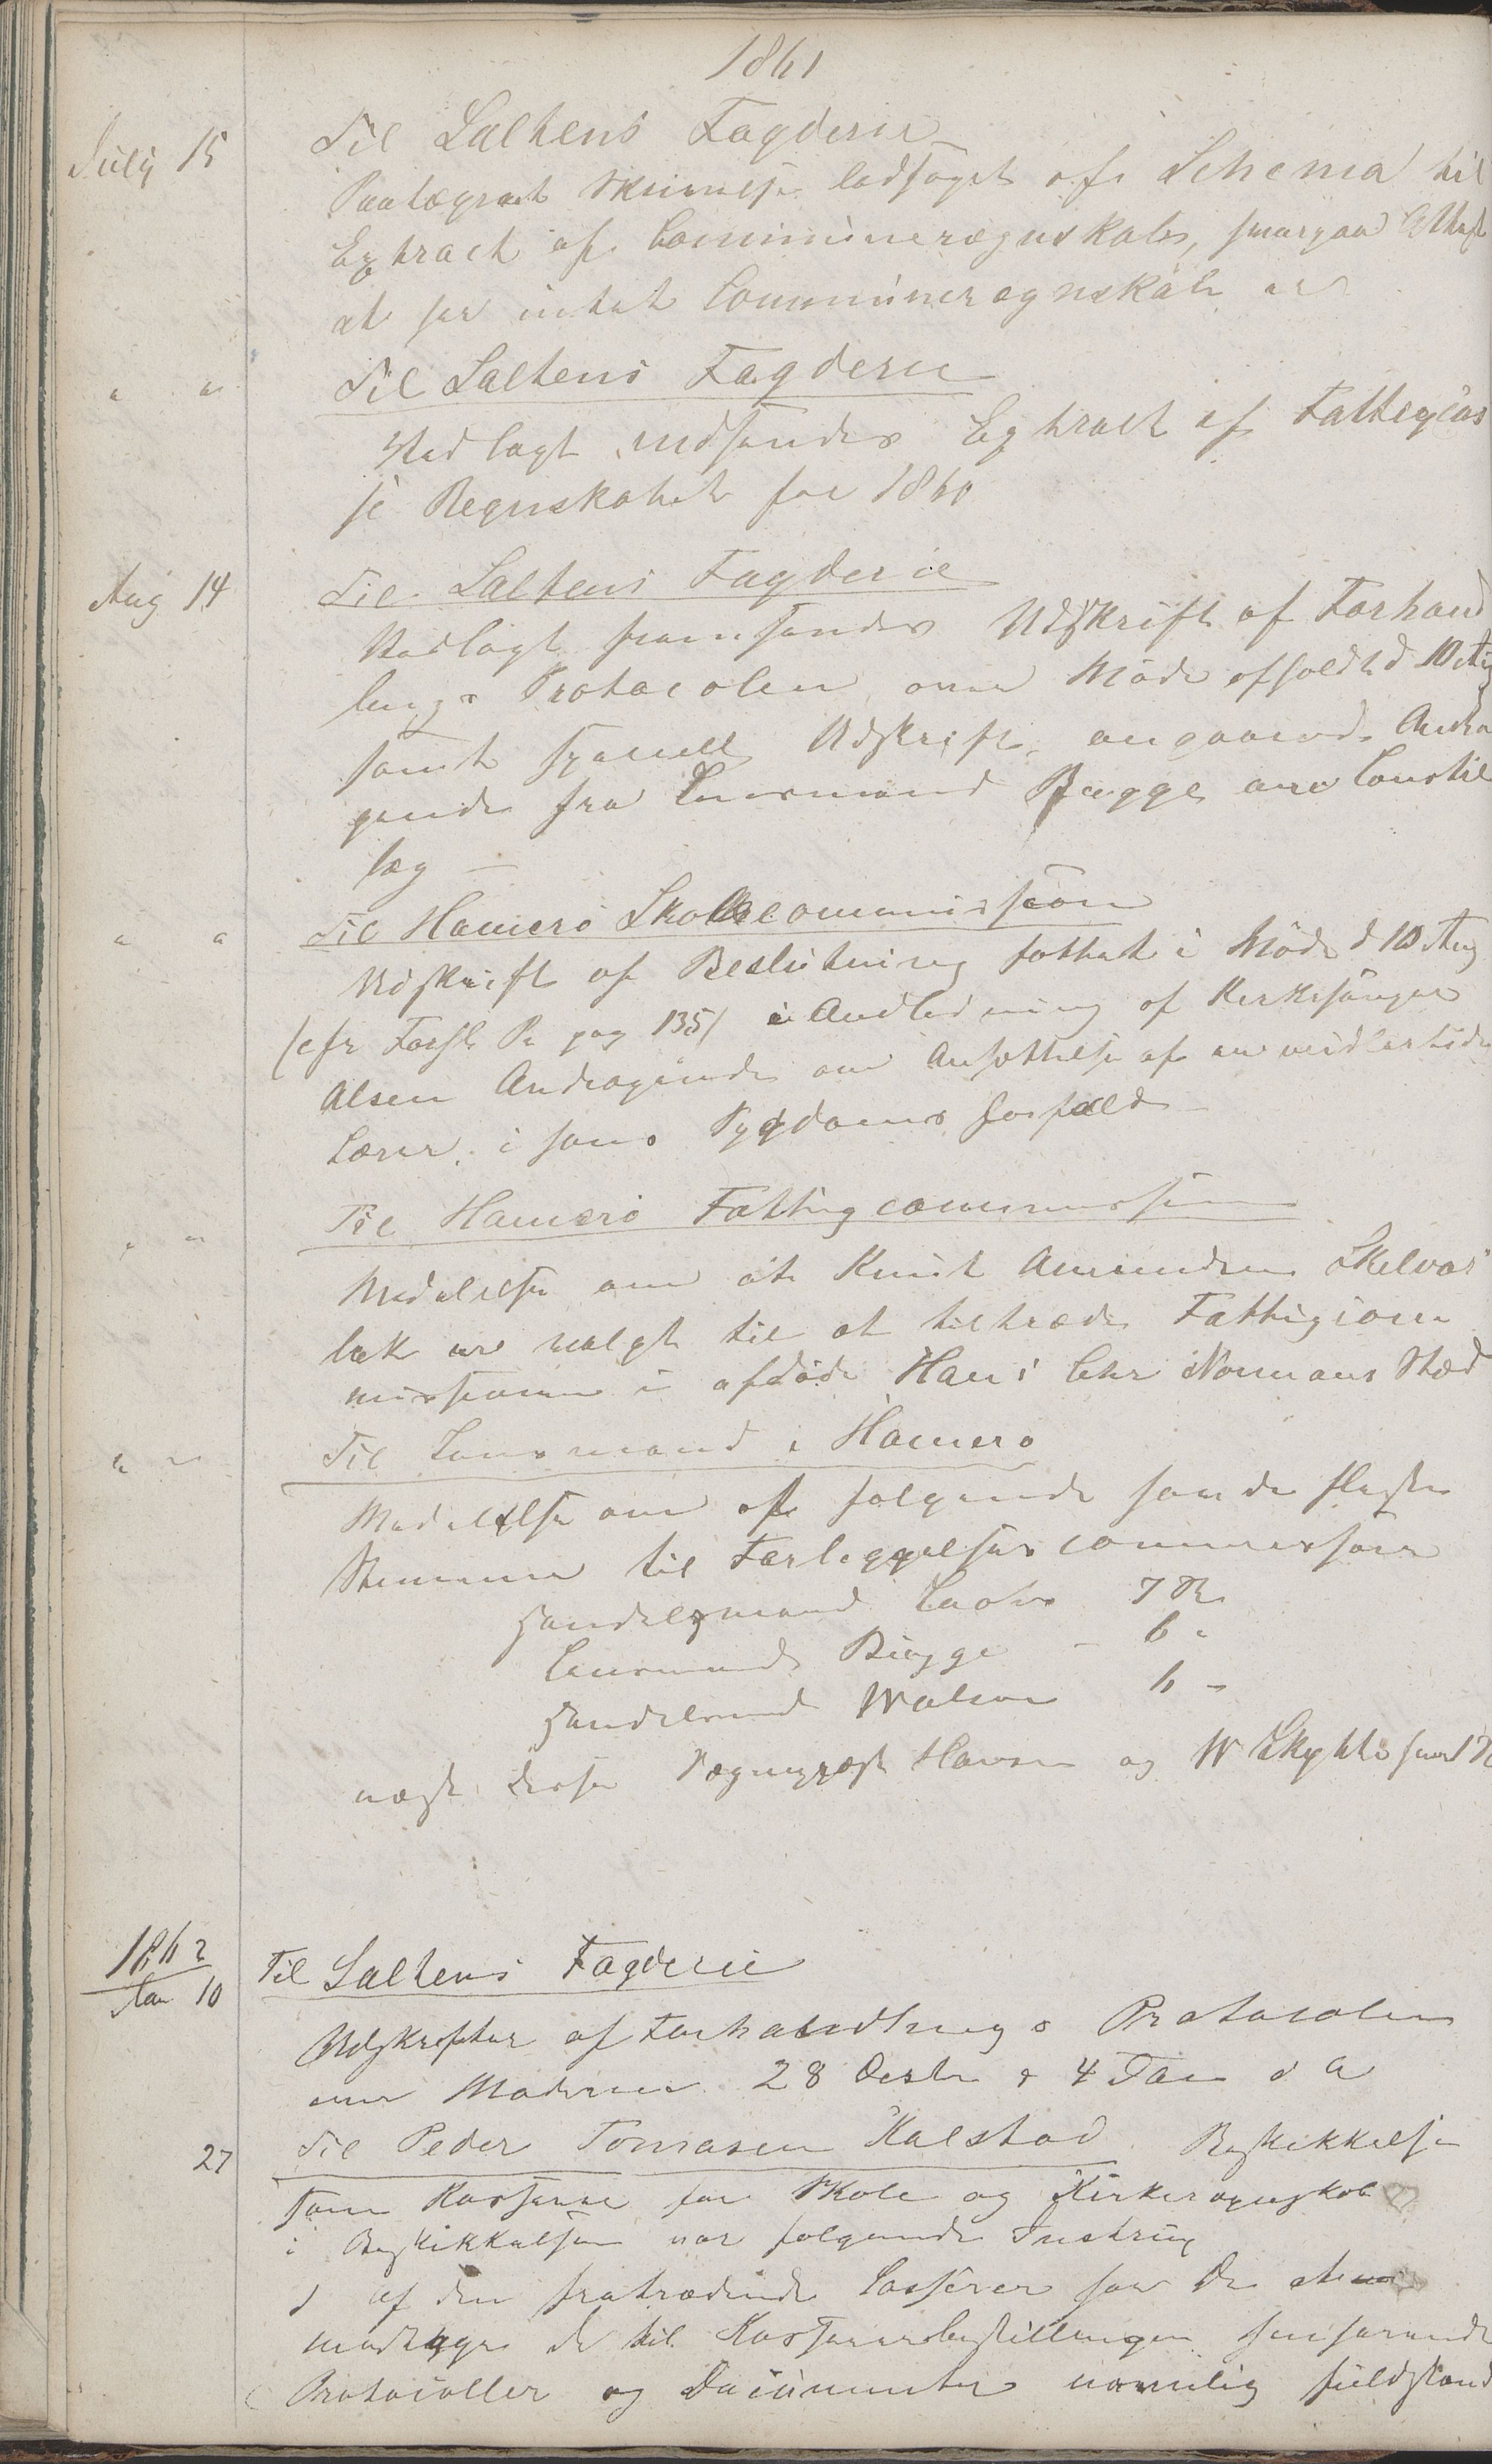 1861
July 15 Til Saltens Fogderie
Paategnet Skrivelse ledsaget af Schema til
Extract af Communeregnskab, paa Attest
at her intet Communeregnskab er
" " Til Saltens Fogderie
Vedlagt indsendes Extract af Fattigcas
se Regnskabet for 1860
Aug 14 Til Saltens Fogderie
Vedlagt fremsendes Udskrift af Forhand
lings Protocolen, om Møde afholdt d 10 Aug
samt speciell Udskrift angaaende Andra
gende fra Lensmand Bugge om Constil
læg —
" " Til Hamerø Skolecommission
Udskrift af Beslutning fattet i Møde d 10 Aug
(cfr Forh. Pr pag 135) i Anledning af Kirkesanger
Alsen Andragende om Ansættelse af en midlertidig
Lærer i hans Sygdoms forfald
" " Til Hamerø Fattigcommission
Meddelelse om at Knut Amundsen Skelvas
bak er valgt til at tiltræde Fattigcom
missionen i afdøde Hans Chr Normans Sted
" " Til Lensmand i Hamerø
Meddelelse om at følgende havde fleste
Stemmer til Forligelsescommissær
Handelsmand 7 St
Lensmand Bugge – 6 "
Handelsmd Walsøe 6 "
næst disse Hansen og W
1862
Jan 10 Til Saltens Fogderie
Udskrifter af Forhandlings Protocolen
om Møderne 28 Decbr & 4 Jan d A
27 Til Peder Tomasen Kalstad Beskikkelse
som Kasserer for Skole og Kirkeregnskab
i Beskikkelsen var følgende Instrux
1 af den fratrædende Casserer har De at
modtage de til Kassererbestillingen henhørende
Protocoller og Documenter nemlig fuldstænd